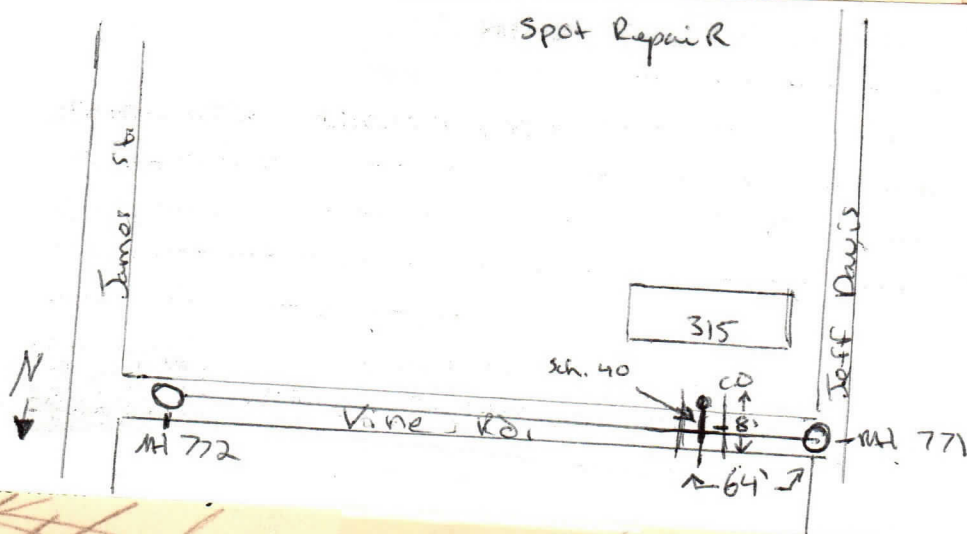 Spot RepaiR
James St.
Jeff Davis
315
Sch. 40
N
CO
8'
Vine Rd.
MH 772
MH 771
64'